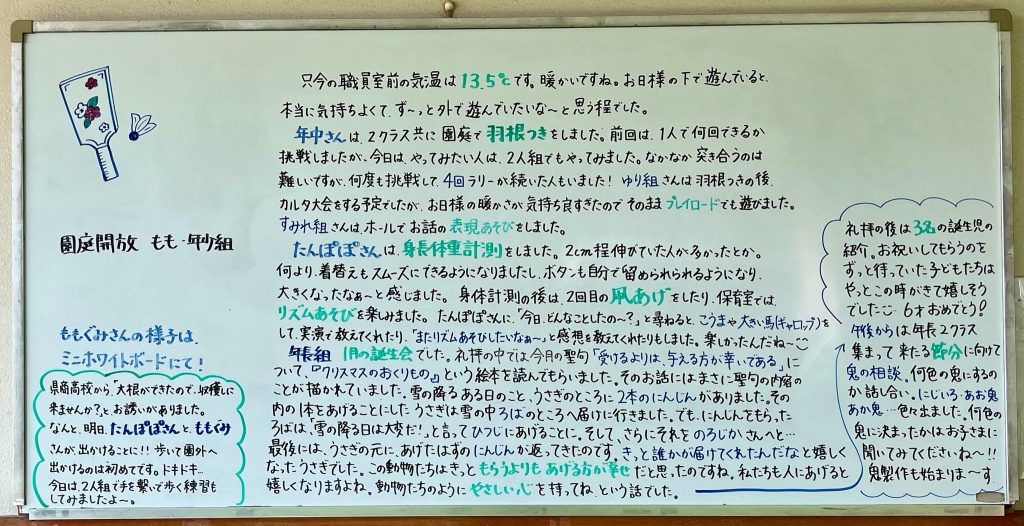 只今の職員室前の気温は13.5℃です。暖かいですね。お日様の下で遊んでいると、
本当に気持ちよくて、ず～っと外で遊んでいたいな～と思う程でした。
年中さんは、2クラス共に園庭で羽根つきをしました。前回は、1人で何回できるか
挑戦しましたが、今日は、やってみたい人は、2人組でもやってみました。なかなか突き合うのは
難しいですが、何度も挑戦して、4回ラリーが続いた人もいました！ゆり組さんは羽根つきの後、
カルタ大会をする予定でしたが、お日様の暖かさが気持ち良すぎたのでそのままプレイロードでも遊びました。
すみれ組さんは、ホールでお話の表現あそびをしました。
たんぽぽさんは、身長体重計測をしました。2cm程伸びていた人が多かったとか。
何より、着替えもスムーズにできるようになりましたし、ボタンも自分で留められるようになり、
大きくなったなぁ～と感じました。身体計測の後は、2回目の凧あげをしたり、保育室では、
リズムあそびを楽しみました。たんぽぽさんに、「今日、どんなことしたの～?」と尋ねると、こうまや大きい馬(ギャロップ)を
して、実演で教えてくれたり、「またリズムあそびしたいなぁ～」と感想を教えてくれたりもしました。楽しかったんだね～
年長組 1月の誕生会でした。礼拝の中では今月の聖句「受けるよりは、与える方が幸いである」に
ついて、『クリスマスのおくりもの』という絵本を読んでもらいました。そのお話にはまさに聖句の内容の
ことが描かれていました。雪の降るある日のこと、うさぎのところに2本のにんじんがありました。その
内の1本をあげることにしたうさぎは雪の中ろばのところへ届けに行きました。でも、にんじんをもらった
ろばは、「雪の降る日は大変だ!」と言ってひつじにあげることに。そして、さらにそれをのろじかさんへと…
最後には、うさぎの元に、あげたはずのにんじんが返ってきたのです。きっと誰かが届けてくれたんだなと嬉しく
なったうさぎでした。この動物たちはきっともらうよりもあげる方が幸せだと思ったのですね。私たちも人にあげると
嬉しくなりますよね。動物たちのようにやさしい心を持ってね、という話でした。
園庭開放 もも・年少組
ももぐみさんの様子は、
ミニホワイトボードにて！
県商高校から、「大根ができたので、収穫に
来ませんか?」と、お誘いがありました。
なんと、明日、たんぽぽさんと、ももぐみ
さんが出かけることに!! 歩いて園外へ
出かけるのは初めてです。ドキドキ…
今日は、2人組で手を繋いで歩く練習も
してみましたよ～。
礼拝の後は3名の誕生児の
紹介。お祝いしてもらうのを
ずっと待っていた子どもたちは
やっとこの時がきて嬉しそう
でした 6才おめでとう！
午後からは年長2クラス
集まって来たる節分に向けて
鬼の相談。何色の鬼にするの
か話し合い。にじいろ・あお鬼
あか鬼…色々出ました。何色の
鬼に決まったかはお子さまに
聞いてみてくださいね～!!
鬼製作も始まりま～す